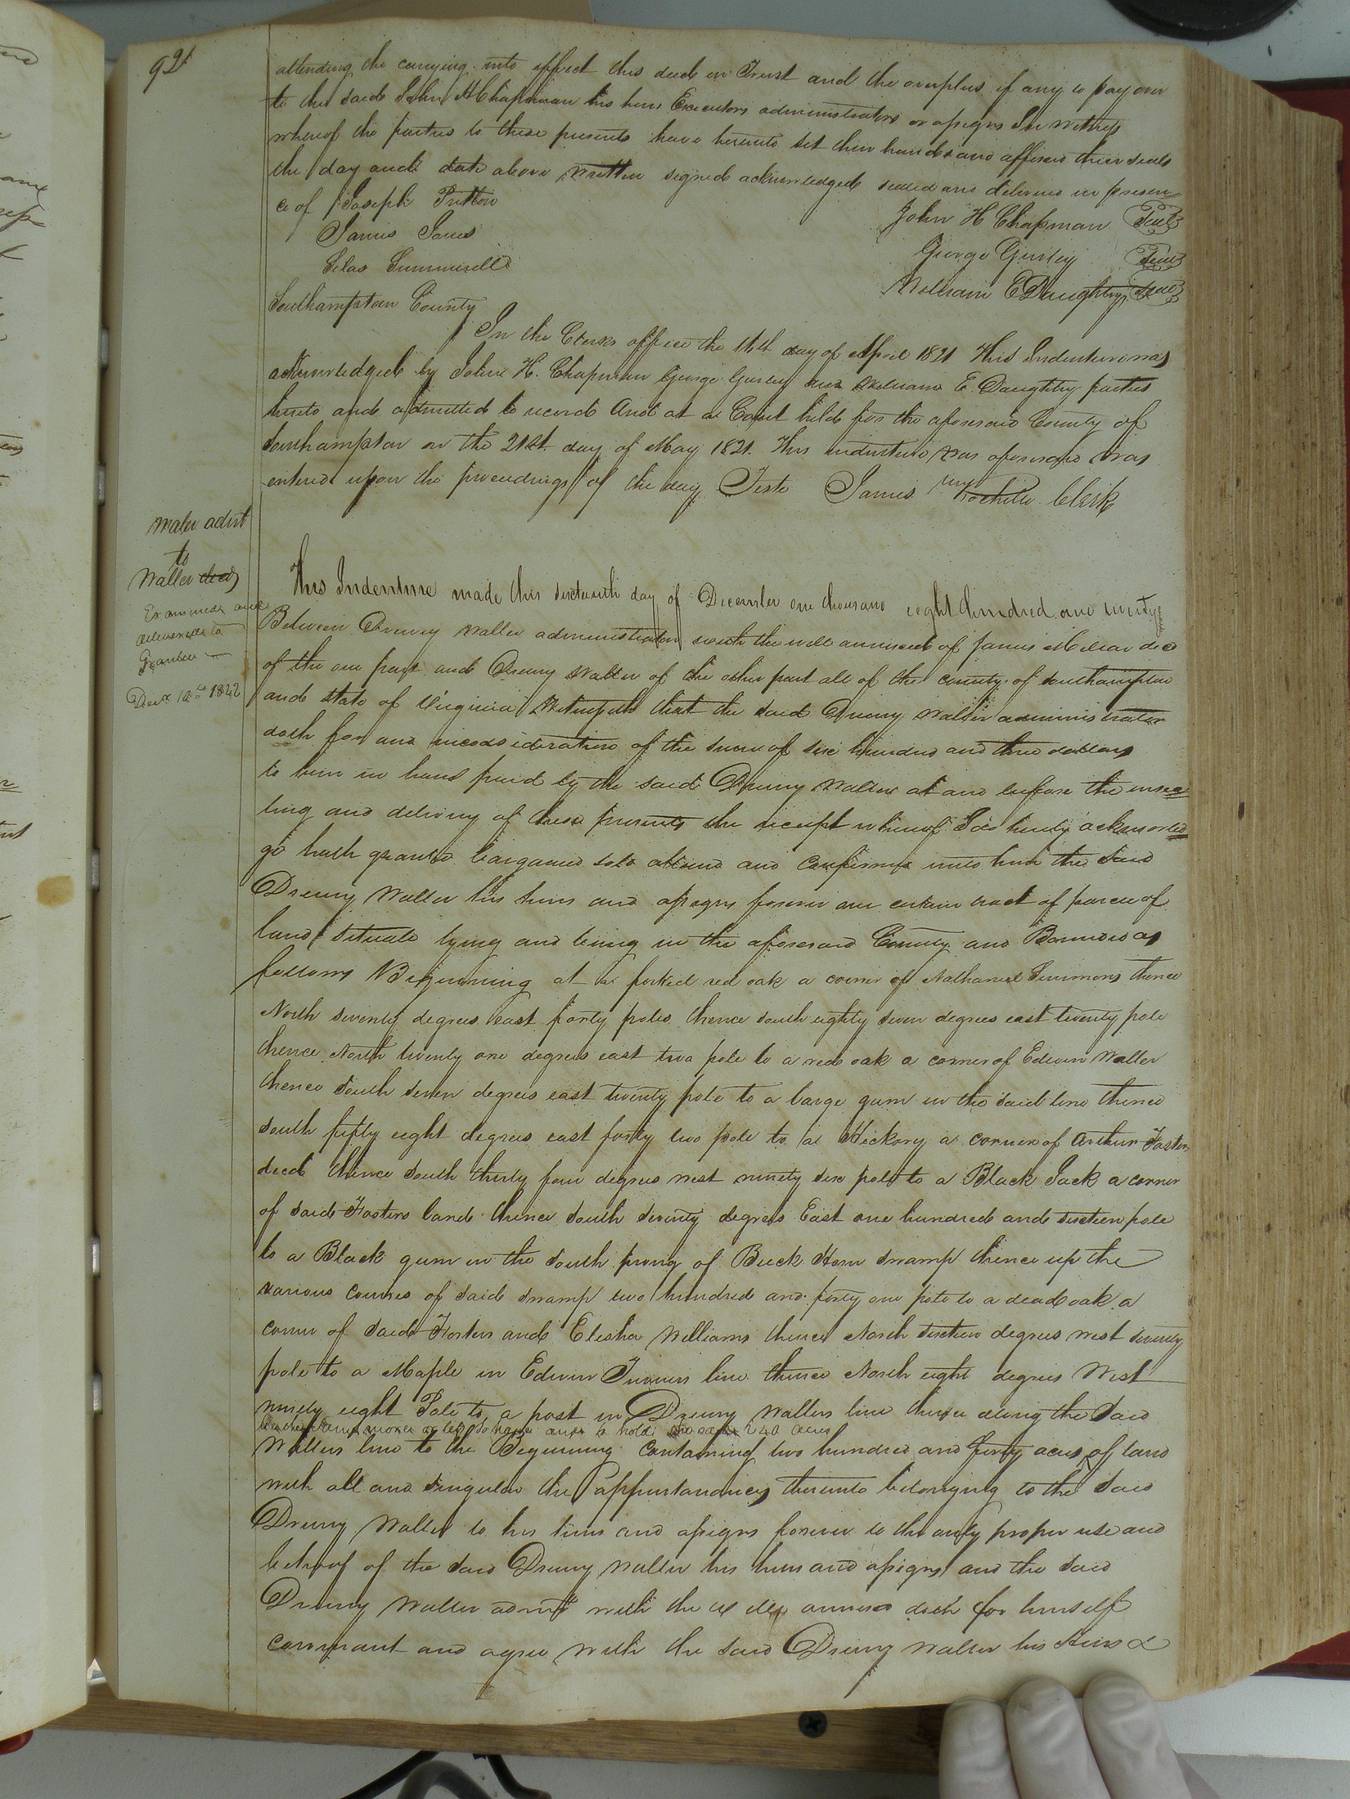 92
attending the carrying into effect this deed in Trust and the overplus if any to pay over
to the said John H Chapman his heirs Executors administrators or assigns In witness
whereof the parties to these presents have hereunto set their hands and affixed their seals
the day and date above written signed acknowledged sealed and delivered in presen
ce of Joseph Pretlow
John H Chapman Seal
James Jones
George Gurley Seal
Silas Summerell
William E Daughtry Seal
Southampton County
In the Clerks office the 16th day of April 1821 This Indenture was
acknowledged by John H. Chapman George Gurley and William E Daughtry parties
hereto and admitted to record And at a Court held for the aforesaid County of
Southampton on the 21st day of May 1821. This indenture was aforesaid was
entered upon the proceedings of the day Teste James Rochelle Clerk
Waller admt
to
Waller deed
Examined and
delivered to
Grantee
Decr 12th 1822
This Indenture made this sixteenth day of December one thousand eight hundred and twenty
Between Drewry Waller administrator with the will annexed of James decd
of the one part and Drewry Waller of the other part all of the county of Southampton
and State of Virginia Witnesseth that the said Drewry Waller administrator
doth for and in consideration of the sum of six hundred and three dollars
to him in hand paid by the said Drewry Waller at and before the ensea
ling and delivery of these presents the receipt whereof I do hereby acknowled
ge hath granted bargained sold aliened and confirmed unto him the said
Drewry Waller his heirs and assigns forever one certain tract of parcel of
land situate lying and being in the aforesaid County and Bounded as
follows Beginning at a forked red oak a corner of Nathaniel Simmons thence
North seventy degrees east forty poles thence south eighty seven degrees east twenty pole
thence North twenty one degrees east two pole to a red oak a corner of Edwin Waller
thence South seven degrees east twenty pole to a large gum in the said line thence
South fifty eight degrees east forty two pole to a Hickory a corner of Arthur Foster
decd thence South thirty four degrees west ninety six pole to a Black Jack a corner
of said Fosters land thence South seventy degrees East one hundred and sixteen pole
to a Black gum in the South prong of Buck Horn swamp thence up the
various courses of said swamp two hundred and forty one pole to a dead oak a
corner of said Fosters and Elisha Williams thence North sixteen degrees west seventy
pole to a Maple in Edwin Turners line thence North eight degrees West
ninety eight Pole to a post in Drewry Wallers line thence along the said
more or less to have and to hold the 240 acres
Wallers line to the Beginning Containing two hundred and forty acres of land
with all and singular the appurtanances thereunto belonging to the said
Drewry Waller to his heirs and assigns forever to the only proper use and
behoof of the said Drewry Waller his heirs and assigns and the said
Drewry Waller admr with the annexed doth for himself
covenant and agree with the said Drewry Waller his Heirs &